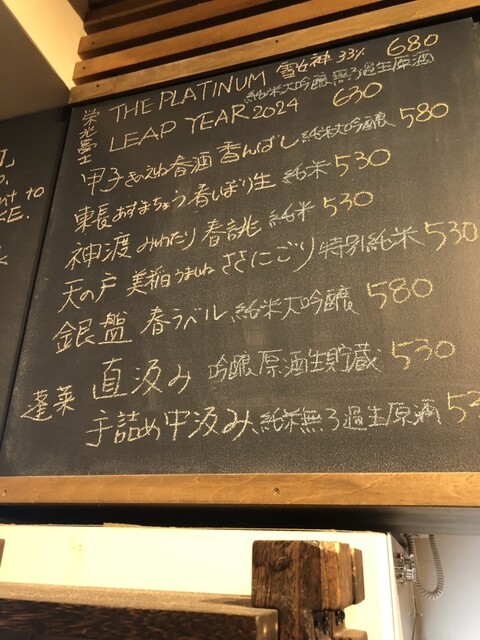 THE PLATINUM 雪女神 33% 680
純米大吟醸無ろ過生原酒
栄光冨士
LEAP YEAR 2024 630
甲子 きのえね 春酒 香んばし 純米大吟醸 580
東長 あずまちょう 春しぼり生 純米 530
神渡 みわたり 春誂 純米 530
天の戸 美稲 うましね ささにごり 特別純米 530
銀盤 春ラベル 純米大吟醸 580
蓬莱 直汲み 吟醸原酒生貯蔵 530
手詰め中汲み 純米無ろ過生原酒 53
nt to
KE.